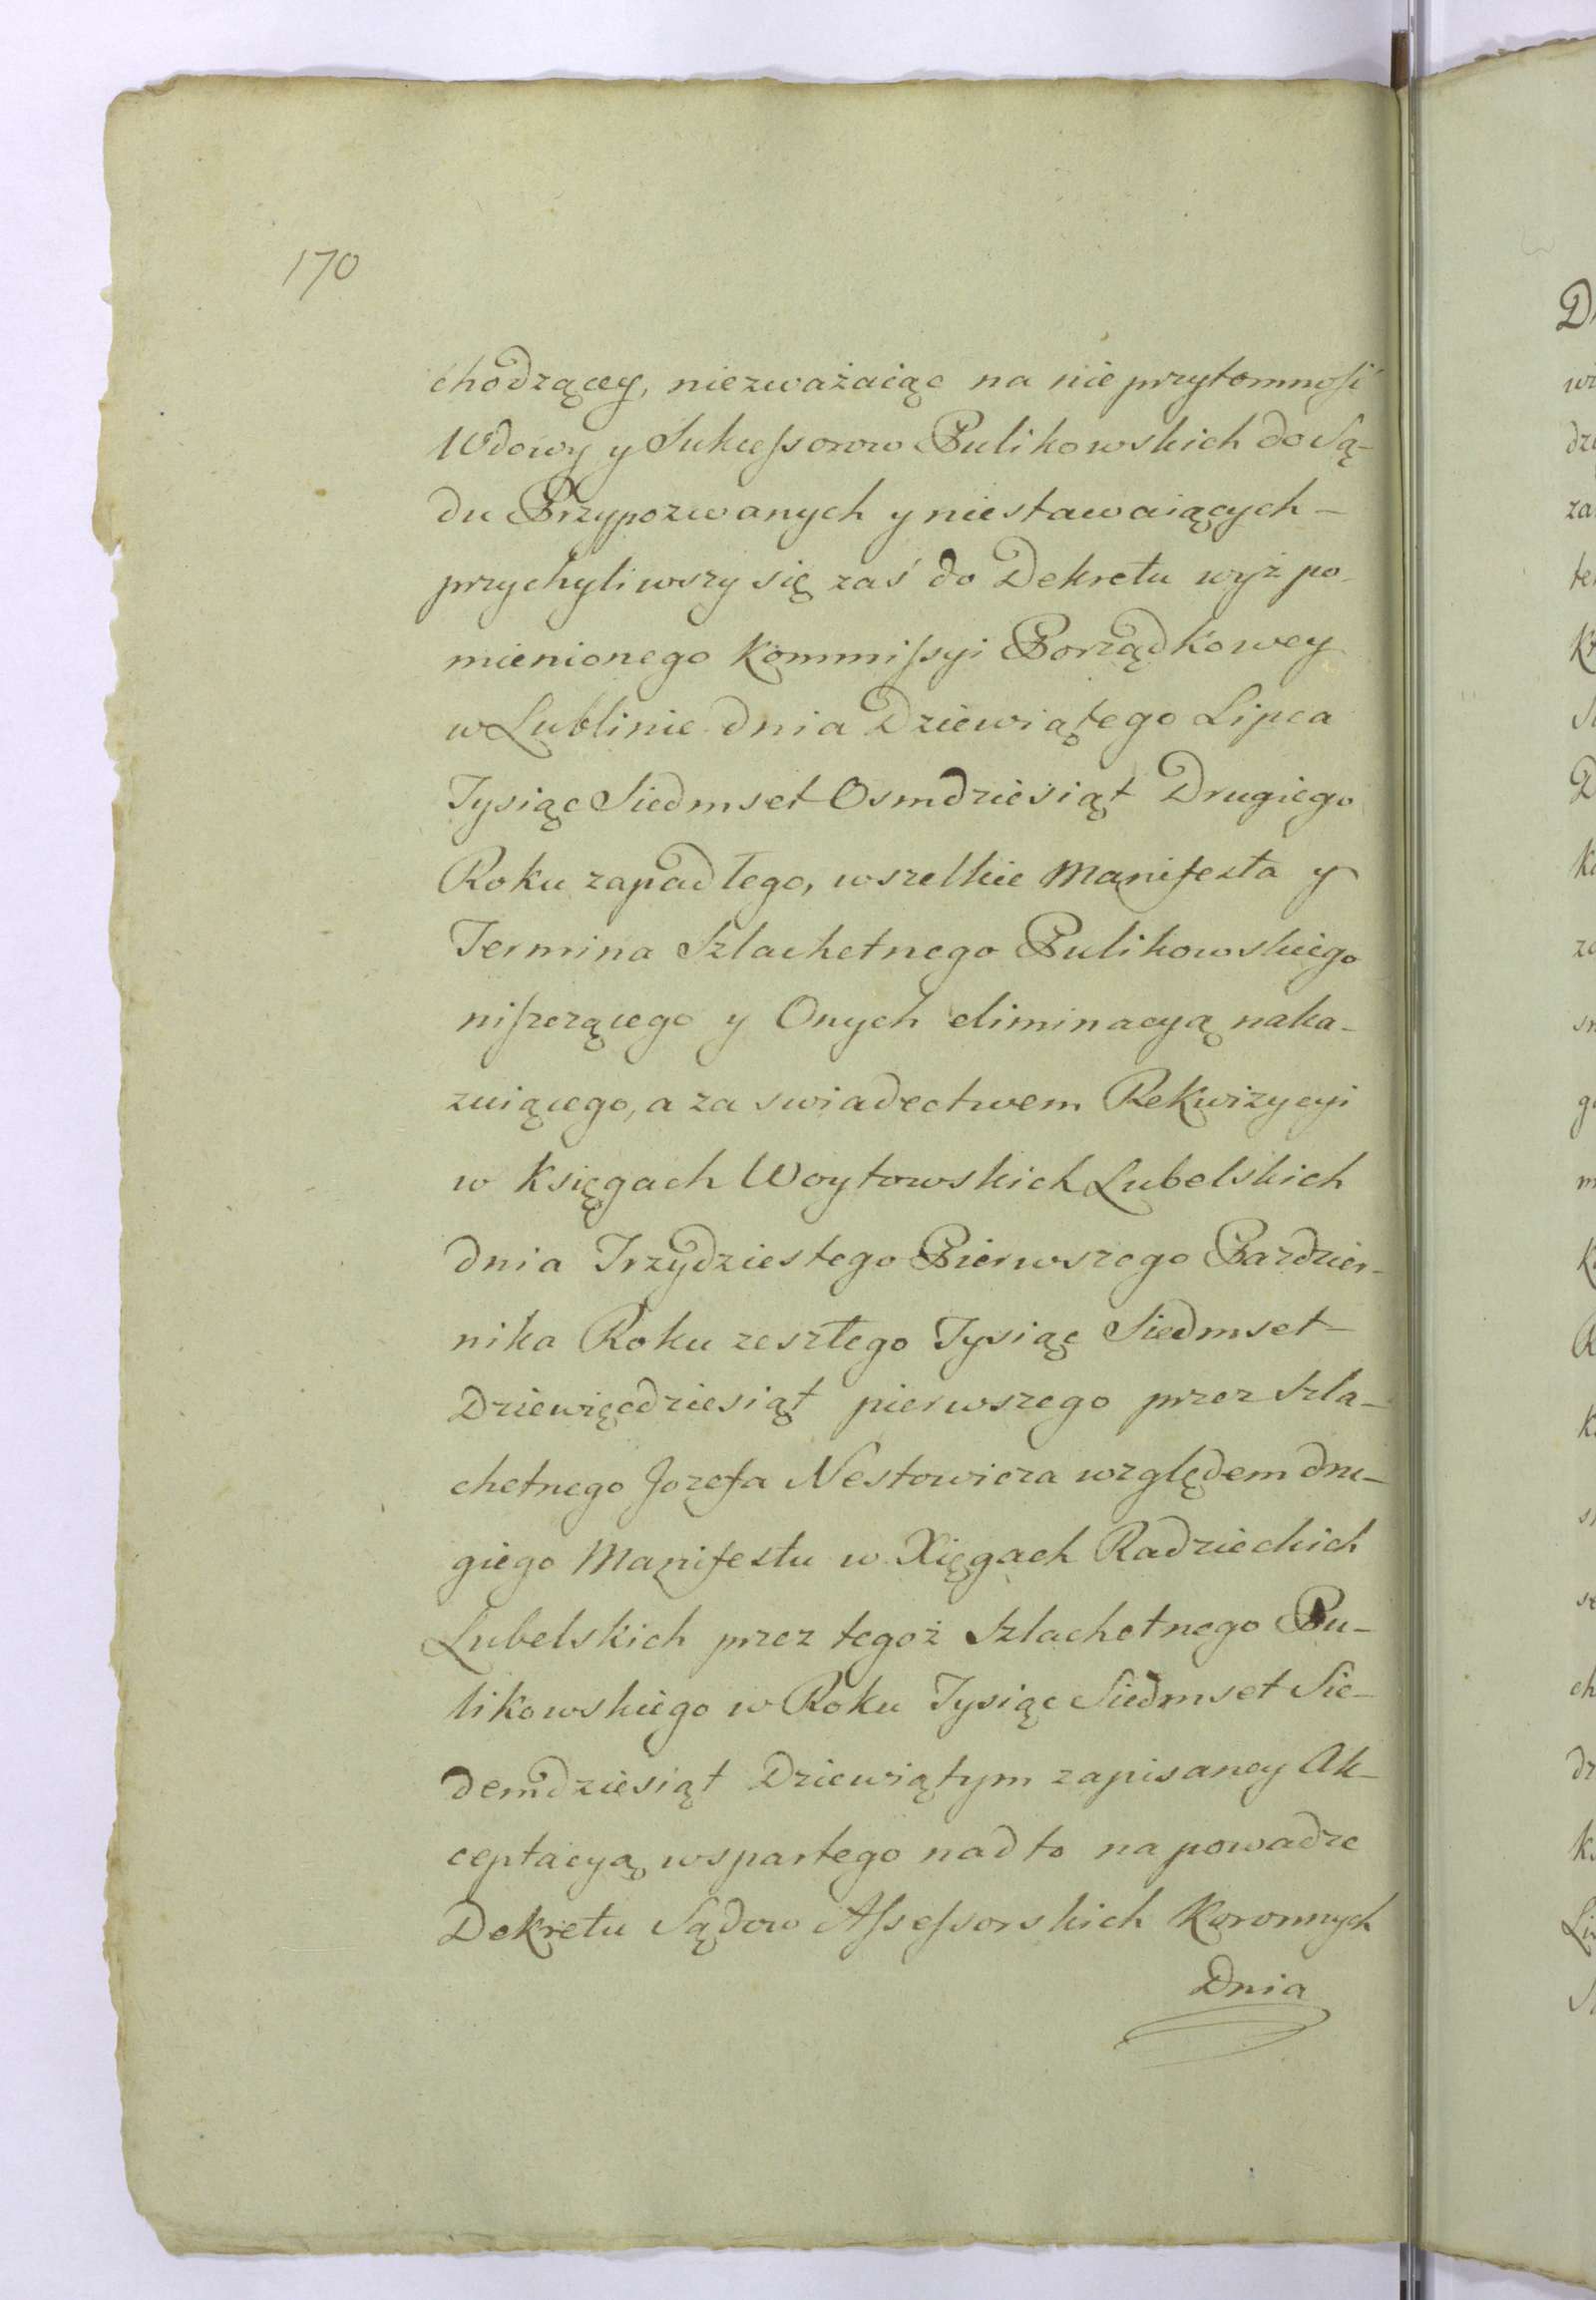 170
chodzącey, niezważaiąc na nieprzytomność
Wdowy y Sukcessorow Pulikowskich do Są-
du Przypozwanych y niestawaiących -
przychyliwszy się zaś do Dekretu wyż po-
mienionego Kommissyi Porządkowey
w Lublinie dnia Dziewiątego Lipca
Tysiąc Siedmset Osmdziesiąt Drugiego
Roku zapadłego, wszelkie Manifesta y
Termina Szlachetnego Pulikowskiego
niszczącego y Onych eliminacyą naka-
zuiącego, a za swiadectwem Rekwizycyi
w Księgach Woytowskich Lubelskich
dnia Trzydziestego Pierwszego Pazdzier-
nika Roku zeszłego Tysiąc Siedmset -
Dziewięcdziesiąt pierwszego przez Szla-
chetnego Jozefa Nestowicza względem dru-
giego Manifestu w Xięgach Radzieckich
Lubelskich przez tegoż Szlachetnego Pu-
likowskiego w Roku Tysiąc Siedmset Sie-
demdziesiąt Dziewiątym zapisaney Ak-
ceptacyą wspartego nadto na powadze
Dekretu Sądow Assessorskich Koronnych
Dnia